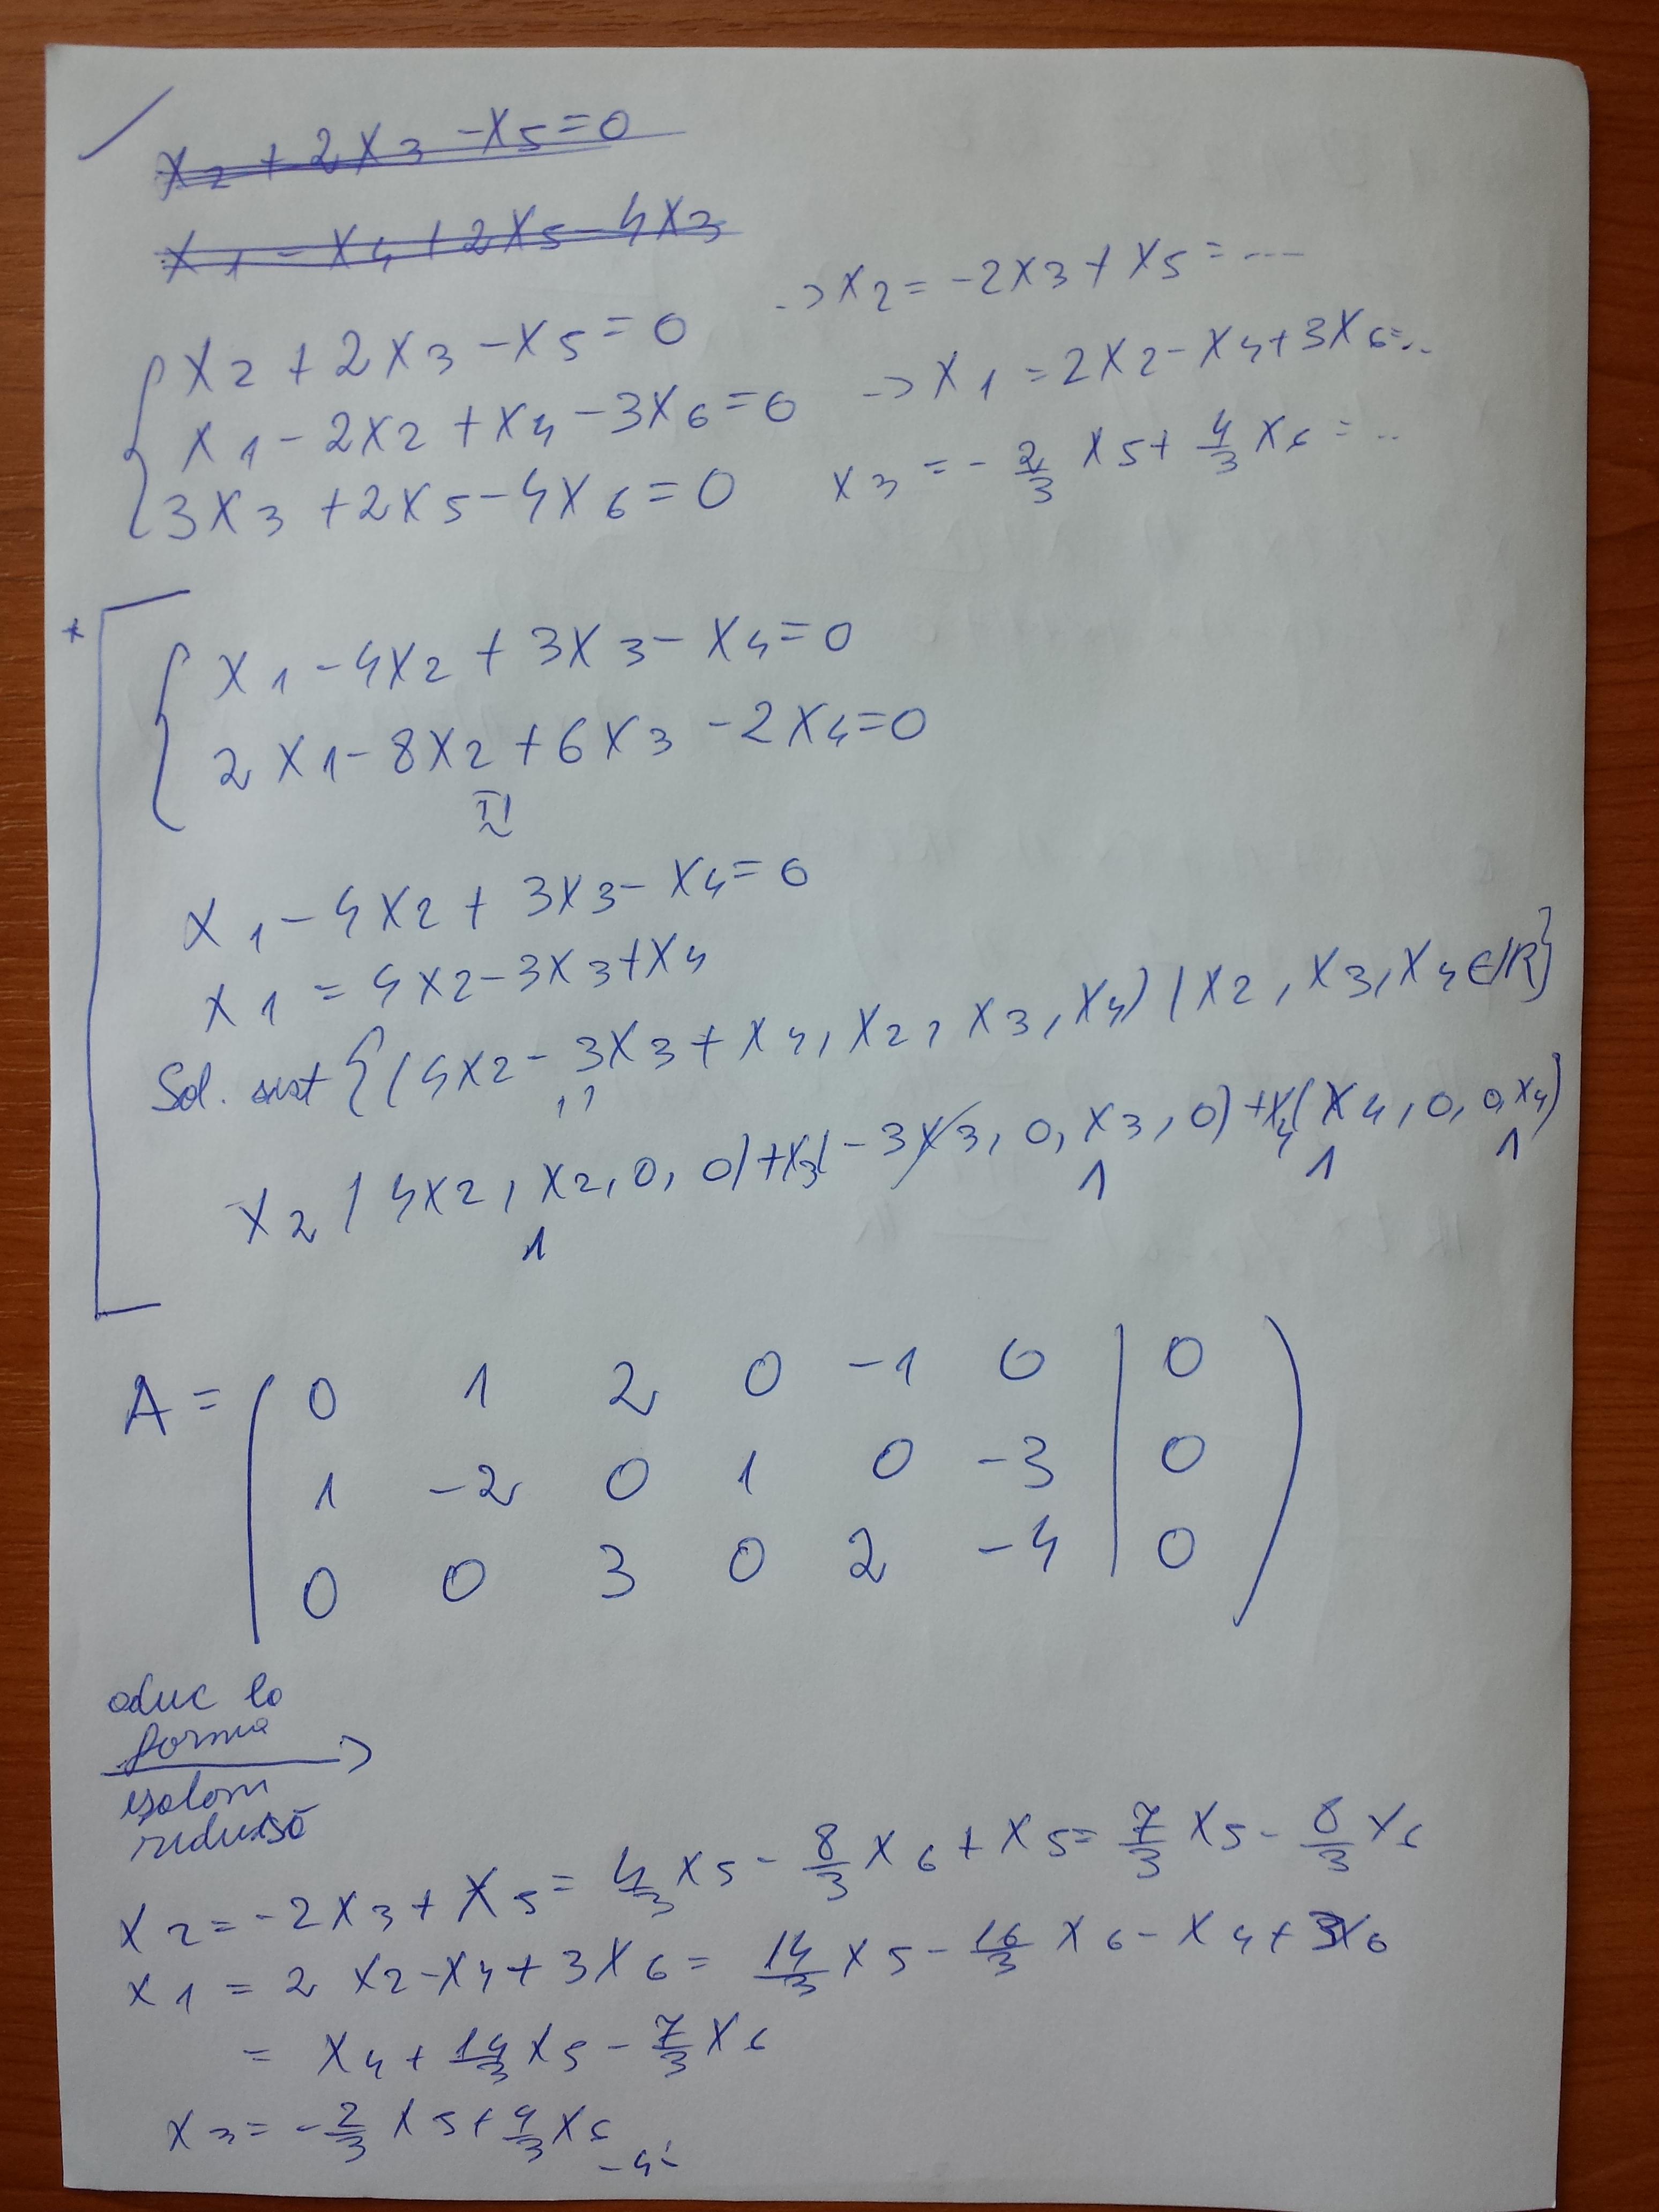 x2 + 2x3 - x5 = 0
x1 - x4 + 2x5 - 4x3
x2 + 2x3 - x5 = 0 -> x2 = -2x3 + x5 = ---
x1 - 2x2 + x4 - 3x6 = 0 -> x1 = 2x2 - x4 + 3x6 = ..
3x3 + 2x5 - 4x6 = 0 x3 = - 2/3 x5 + 4/3 x6 = ..
*
x1 - 4x2 + 3x3 - x4 = 0
2x1 - 8x2 + 6x3 - 2x4 = 0
x1 - 4x2 + 3x3 - x4 = 0
x1 = 4x2 - 3x3 + x4
Sol. sist {(4x2 - 3x3 + x4, x2, x3, x4) | x2, x3, x4 ∈ R}
x2 (4x2, x2, 0, 0) + x3(-3x3, 0, x3, 0) + x4(x4, 0, 0, x4)
1 1 1 1
A = ( 0 1 2 0 -1 0 | 0
1 -2 0 1 0 -3 | 0
0 0 3 0 2 -4 | 0 )
aduc la
forma
eșalon
redusă
x2 = -2x3 + x5 = 4/3 x5 - 8/3 x6 + x5 = 7/3 x5 - 8/3 x6
x1 = 2 x2 - x4 + 3x6 = 14/3 x5 - 16/3 x6 - x4 + 3x6
= x4 + 14/3 x5 - 7/3 x6
x3 = - 2/3 x5 + 4/3 x6